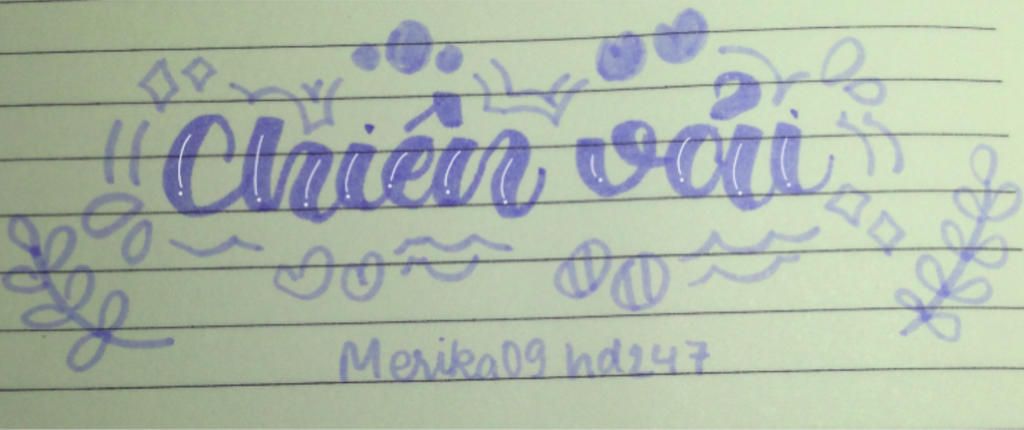 Chiến vải
Merika09 hd247